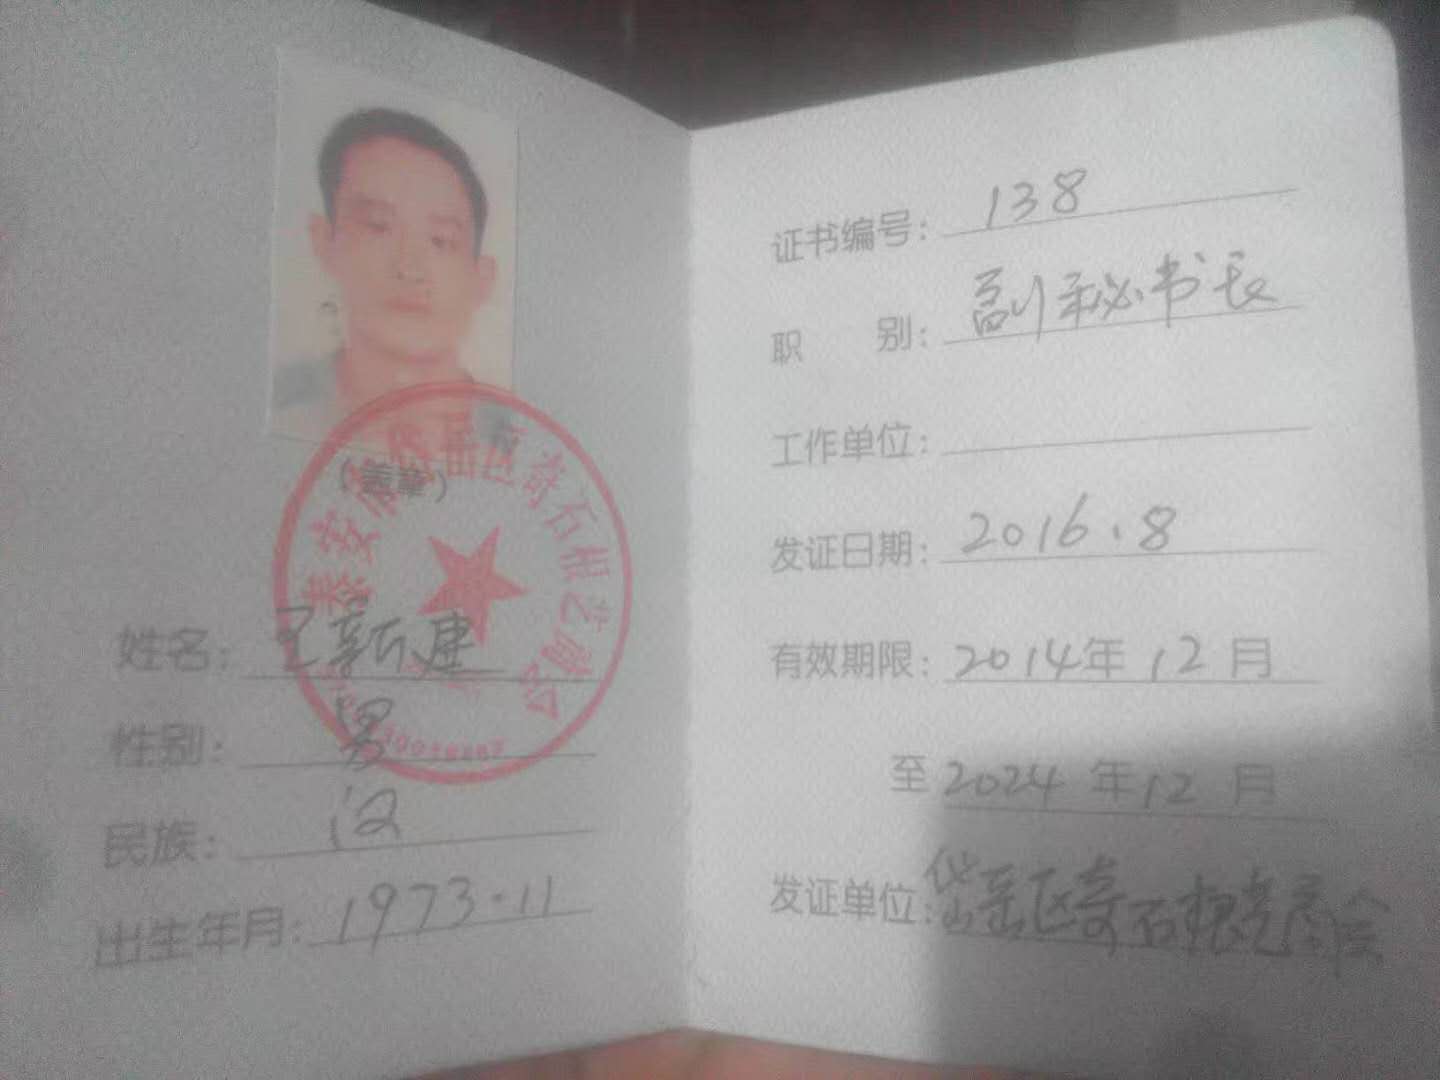 （盖章）
泰安市岱岳区奇石根艺商会
姓名：王新建
性别：男
民族：汉
出生年月：1973.11
证书编号：138
职 别：副秘书长
工作单位：
发证日期：2016.8
有效期限：2014年12月
至2024年12月
发证单位：岱岳区奇石根